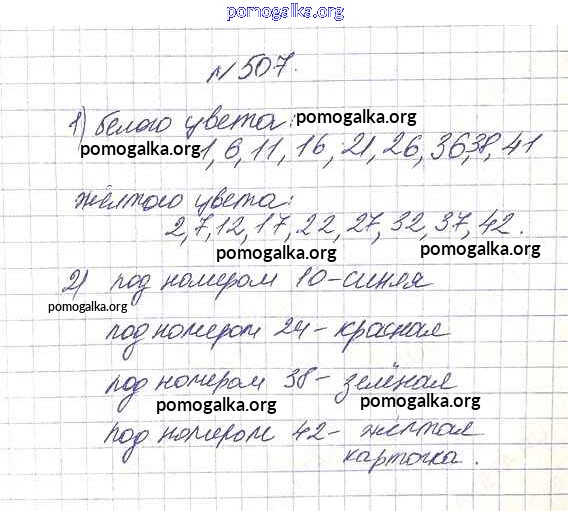 pomogalka.org
№507.
1) белого цвета: pomogalka.org
pomogalka.org 1, 6, 11, 16, 21, 26, 36, 38, 41
жёлтого цвета:
2, 7, 12, 17, 22, 27, 32, 37, 42.
pomogalka.org pomogalka.org
2) под номером 10-синяя
pomogalka.org
под номером 24- красная
под номером 38- зелёная
pomogalka.org pomogalka.org
под номером 42- жёлтая
карточка.
pomogalka.org